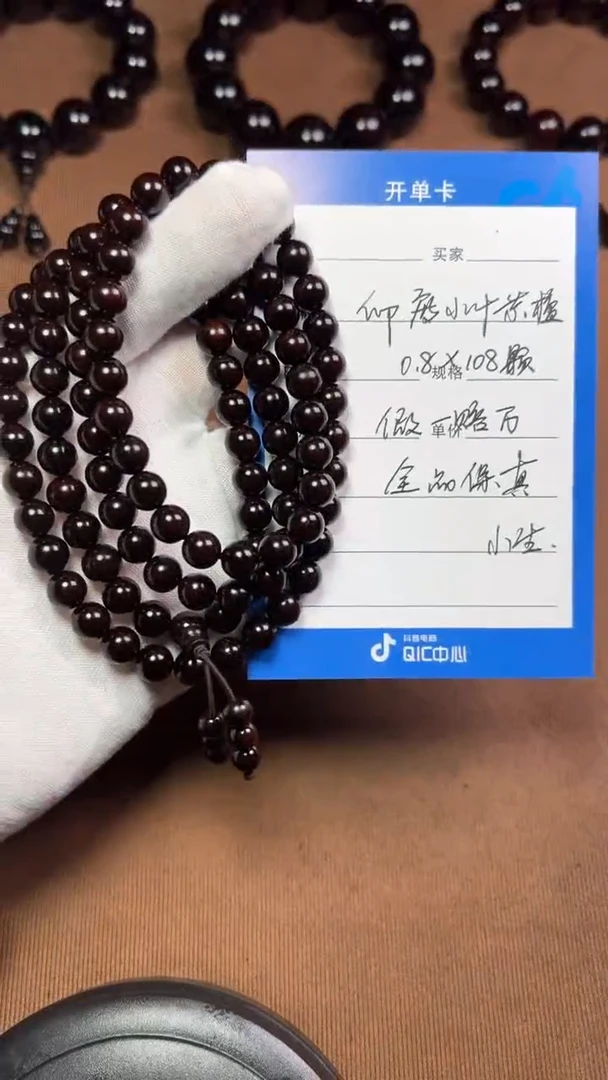 开单卡
买家
印度小叶紫檀
0.8×108颗
规格
单价
全品保真
小生.
抖音电商
QIC中心